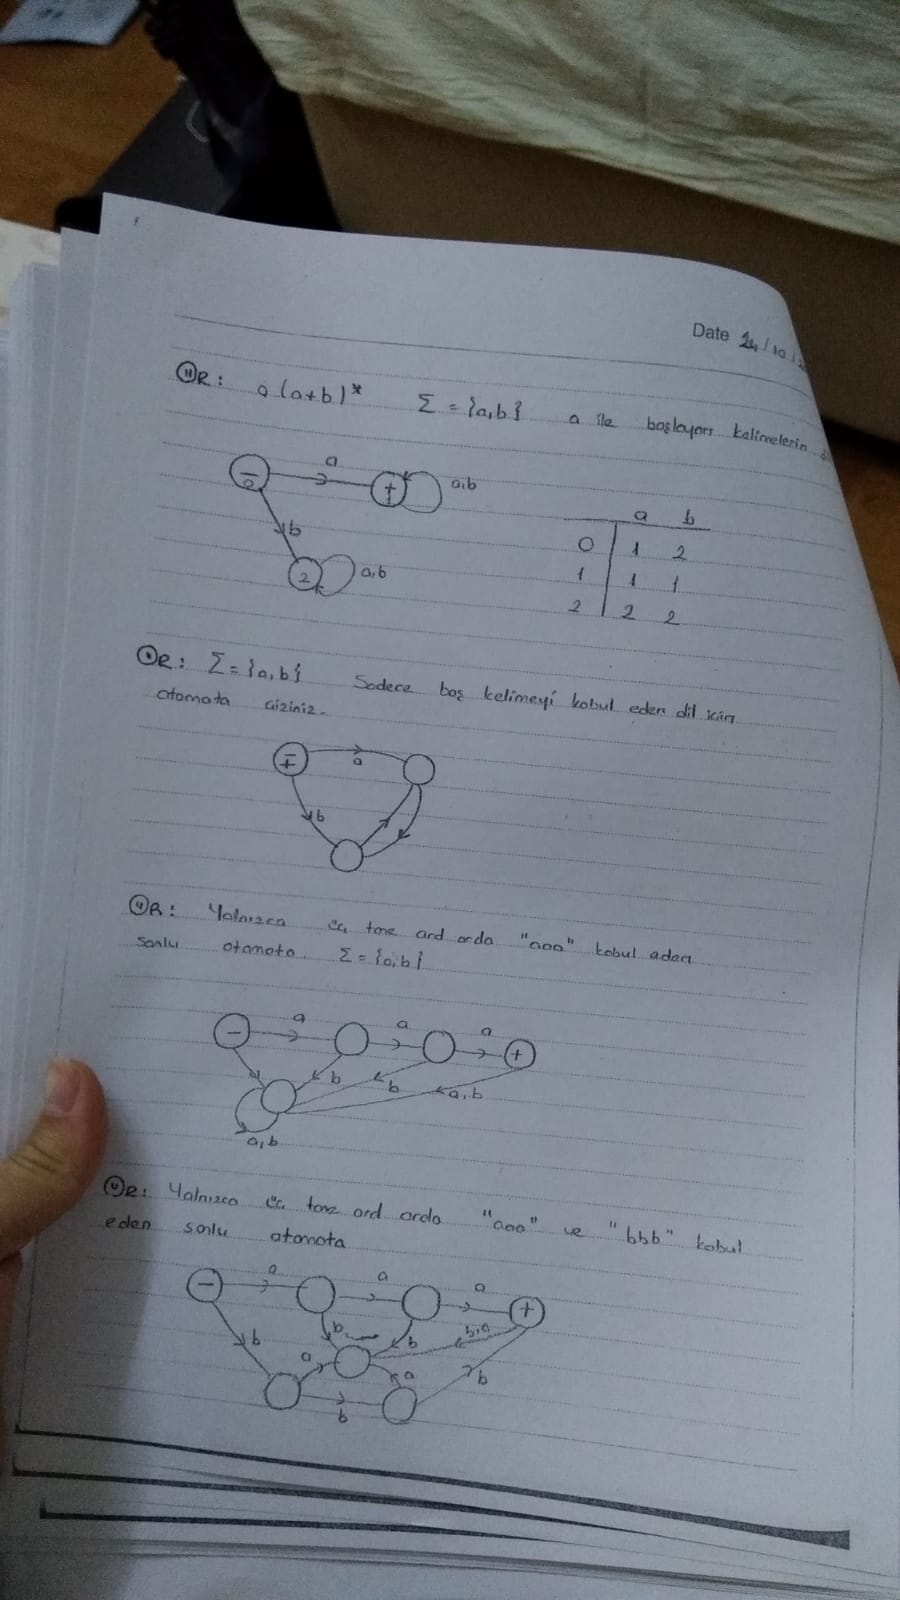 Date 24/10/2
ÖR: a(a+b)* Σ={a,b} a ile başlayan kelimelerin
- a + a,b
0 1
b
2 a,b
a b
0 1 2
1 1 1
2 2 2
ÖR: Σ={a,b} Sadece boş kelimeyi kabul eden dil için
otomata çiziniz.
± a
b
ÖR: Yalnızca üç tane ard arda "aaa" kabul eden
sonlu otomata. Σ={a,b}
- a a a +
b b a,b
a,b
ÖR: Yalnızca üç tane ard arda "aaa" ve "bbb" kabul
eden sonlu otomata
- a a a +
b b b b,a
a a b
b